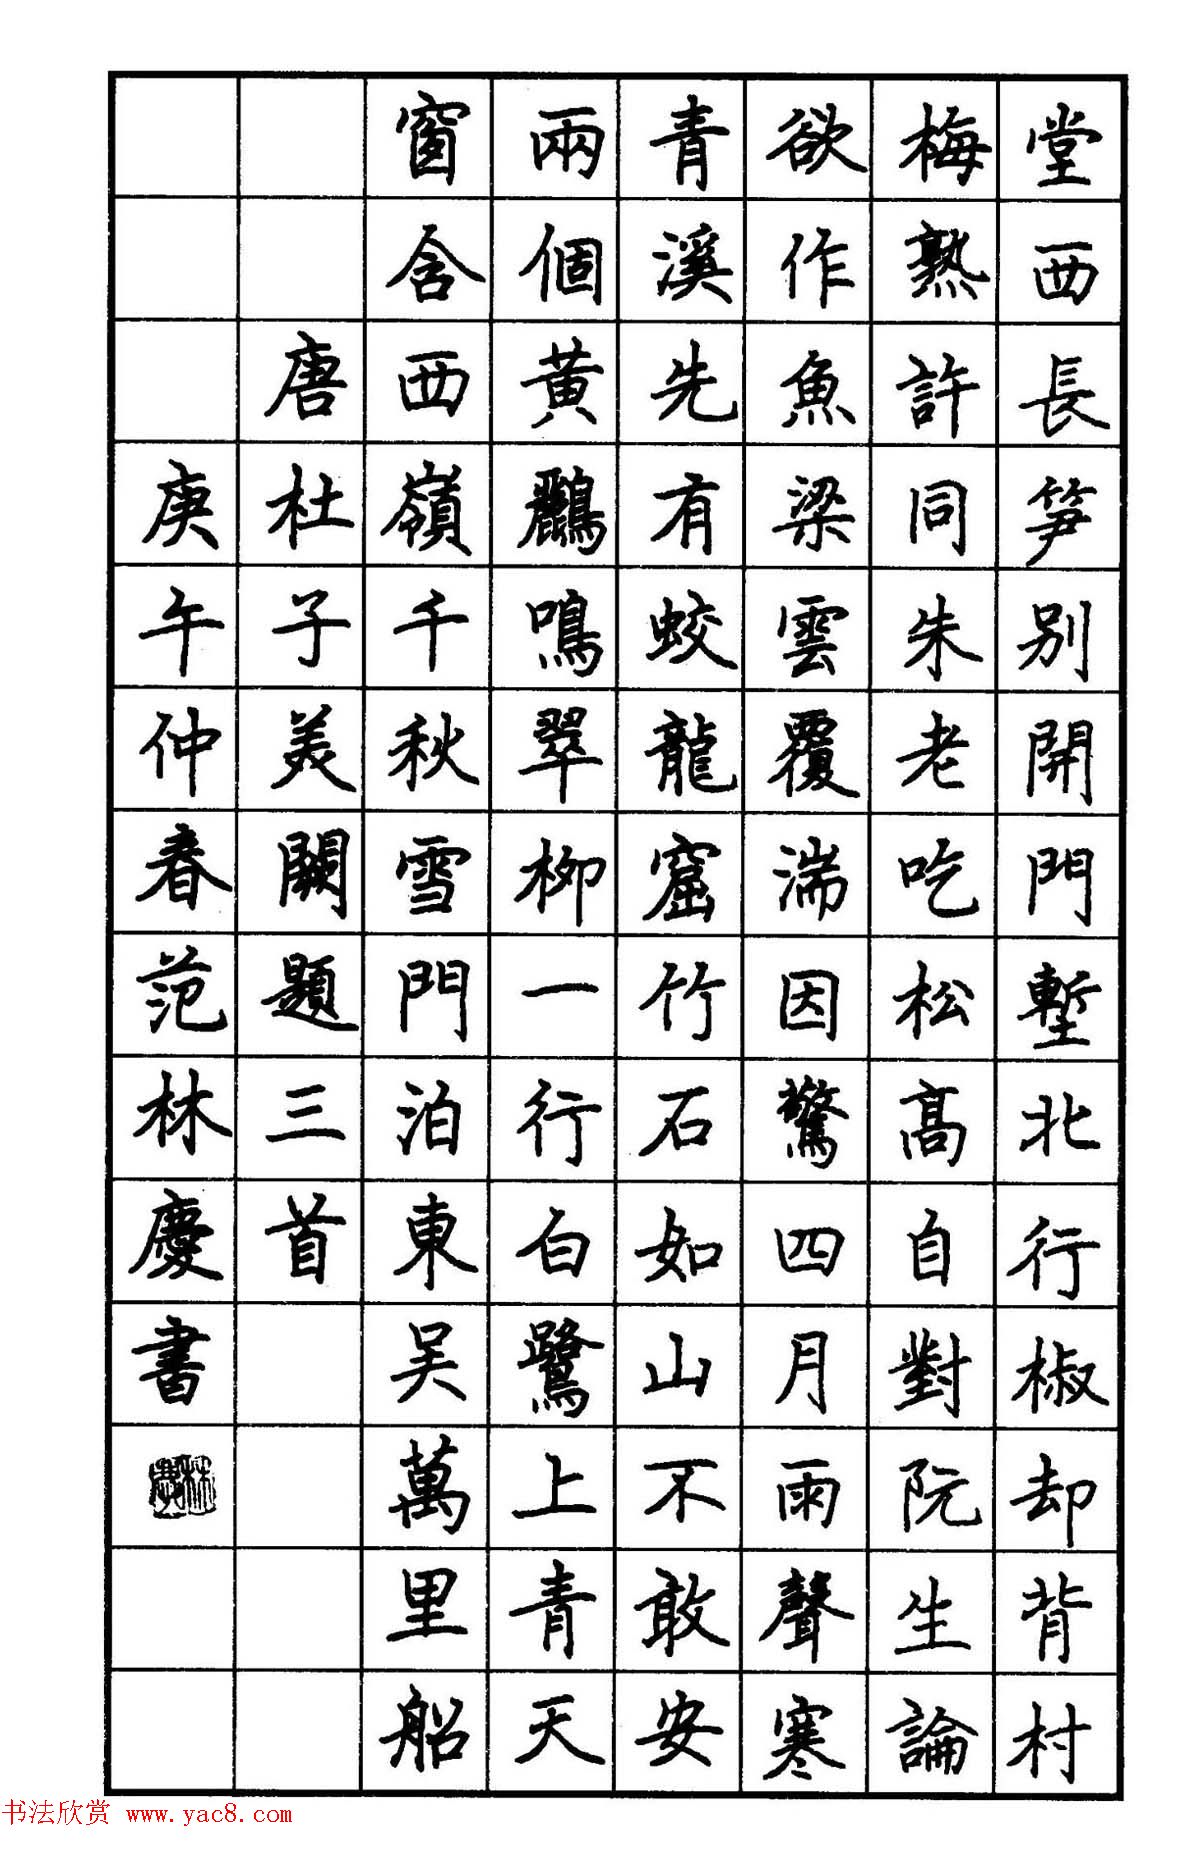 堂西長笋別開門塹北行椒却背村
梅熟許同朱老吃松高自對阮生論
欲作魚梁雲覆湍因驚四月雨聲寒
青溪先有蛟龍窟竹石如山不敢安
兩個黃鸝鳴翠柳一行白鷺上青天
窗含西嶺千秋雪門泊東吳萬里船
唐杜子美闕題三首
庚午仲春范林慶書
林慶
书法欣赏 www.yac8.com